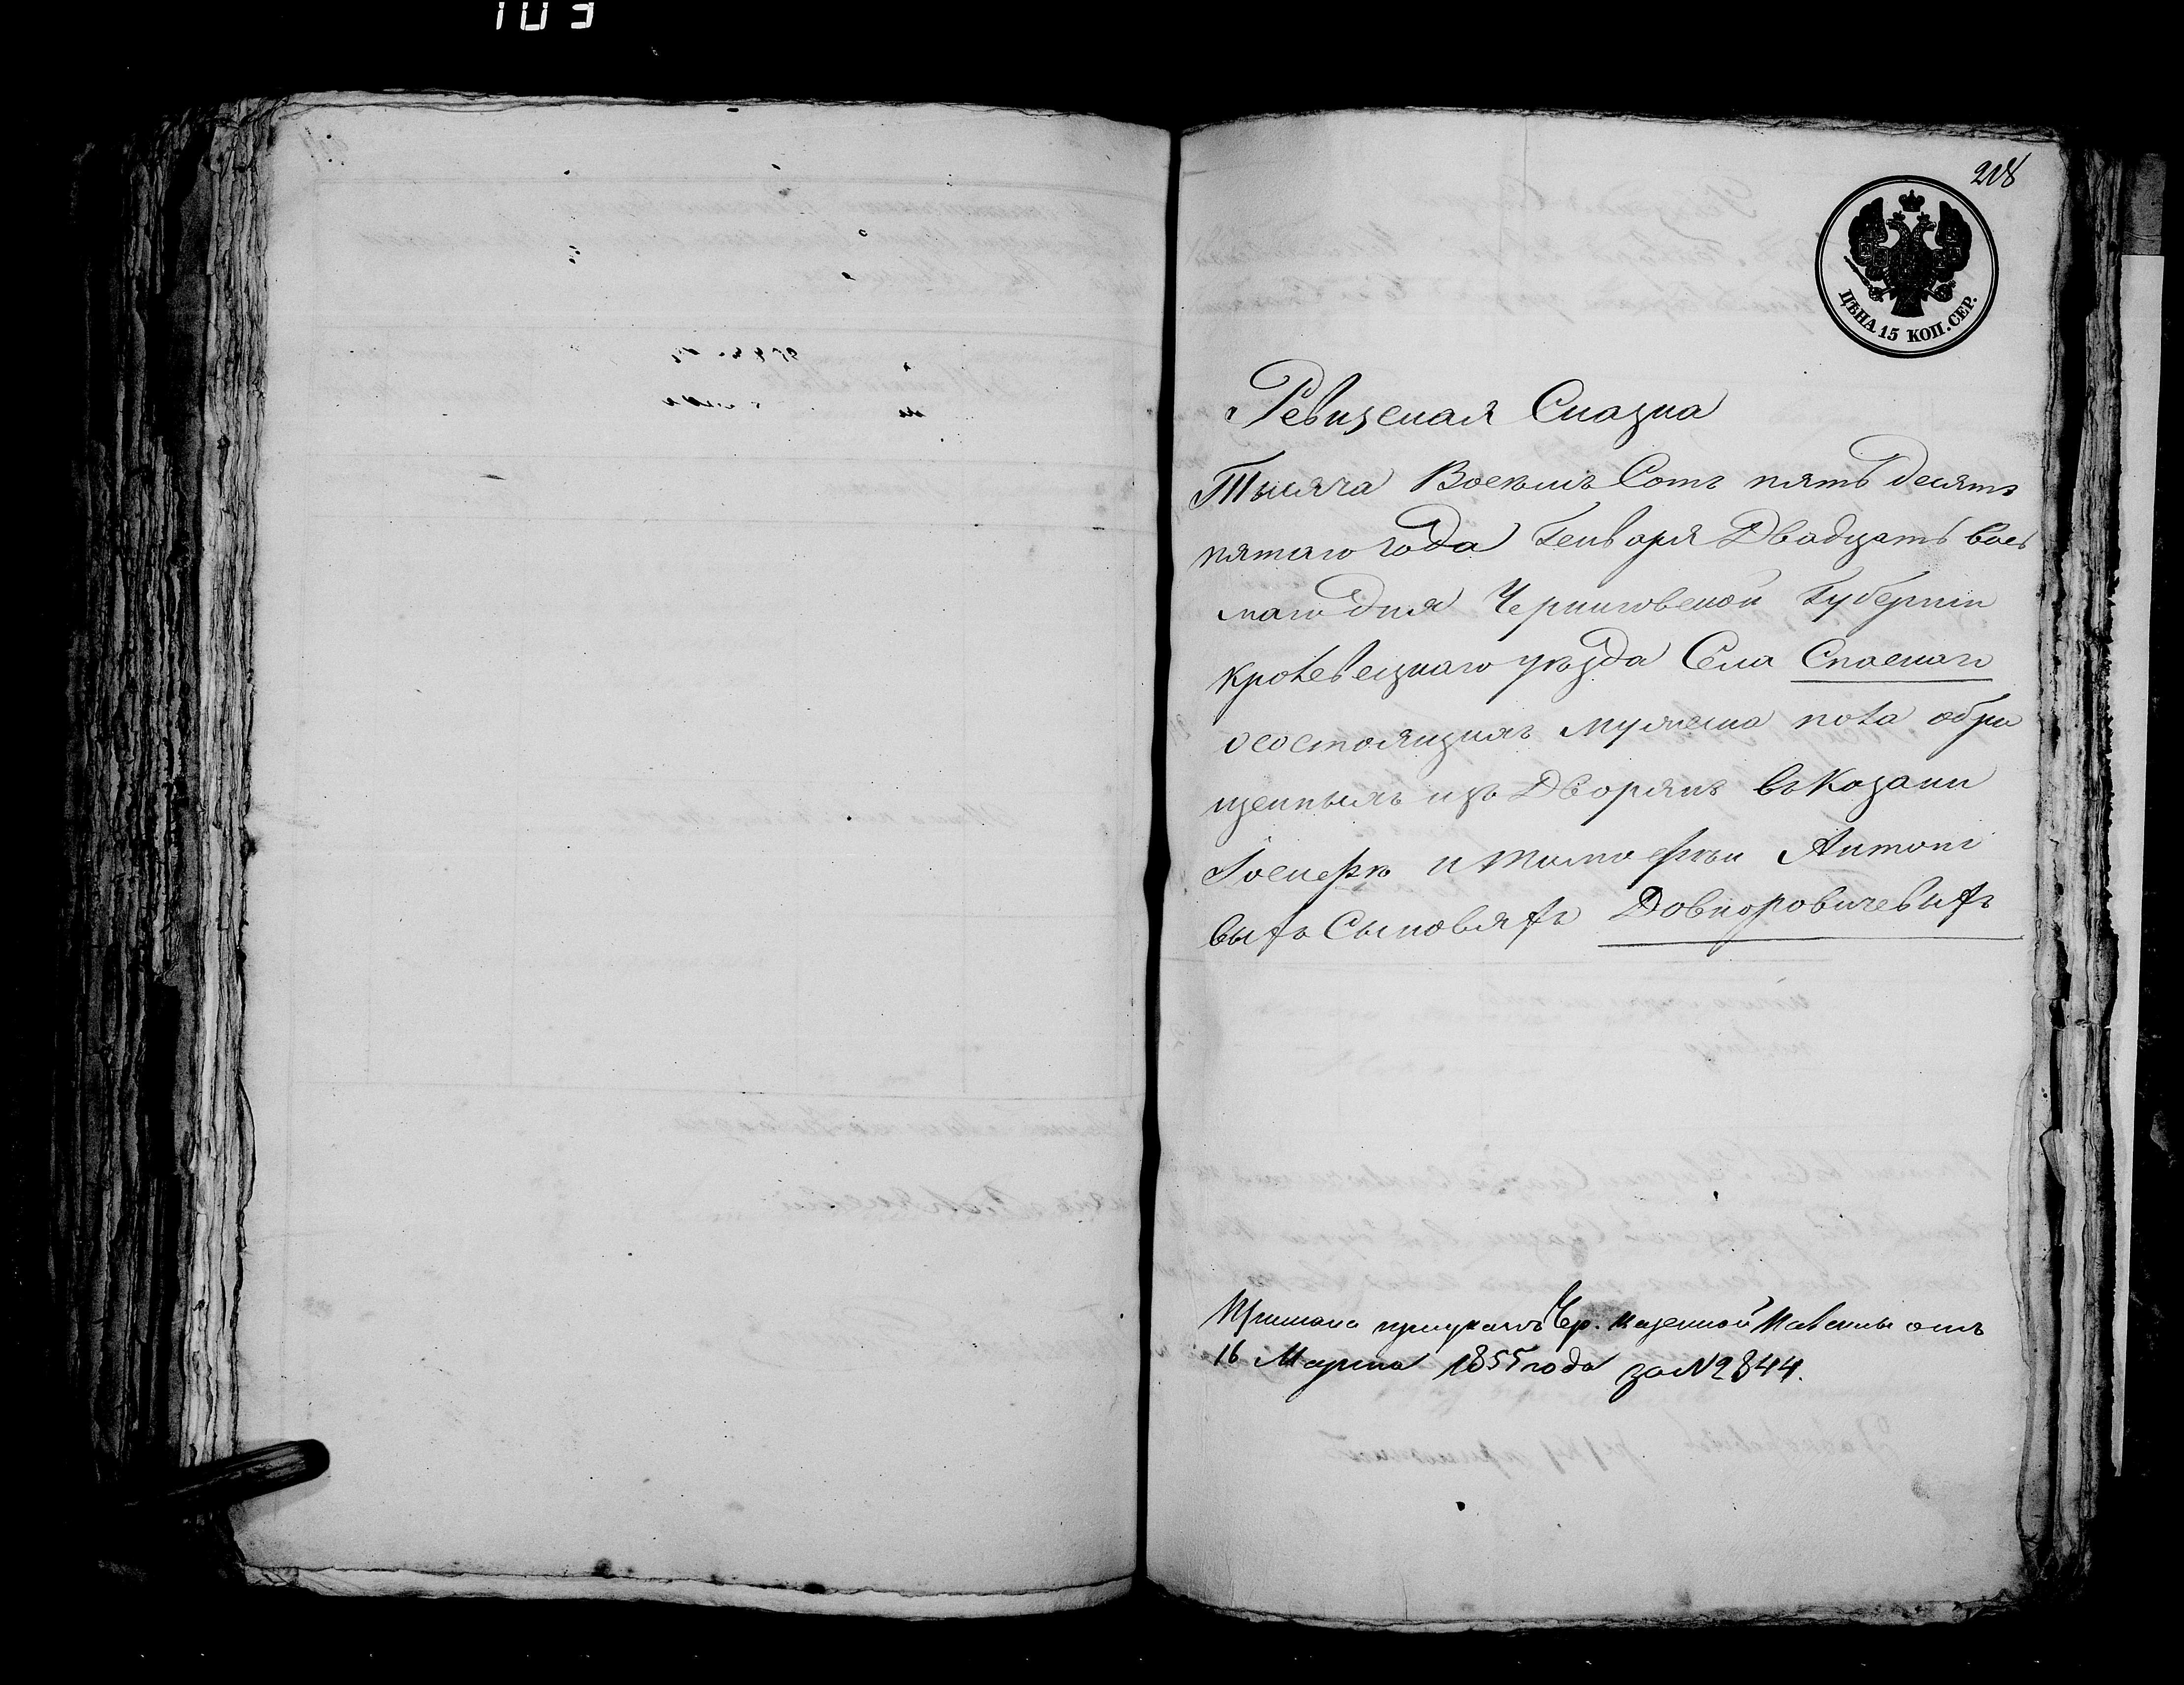 103
218
ЦѢНА 15 КОП. СЕР.
Ревизская Сказка
Тысяча Восемь Сотъ пять десятъ
пятаго года Генваря Двадцать вось
маго дня Черниговской Губернии
Кролевецкаго уезда Села Спаскаго
о состоящихъ мужеска пола обра
щенныхъ изъ Дворянъ въ Козаки
Іосифѣ и Тимофѣи Антоно
выхъ Сыновляхъ Довноровичевыхъ
Прислана при указѣ Чер. Казенной Палаты отъ
16 Марта 1855 года за N 2844.